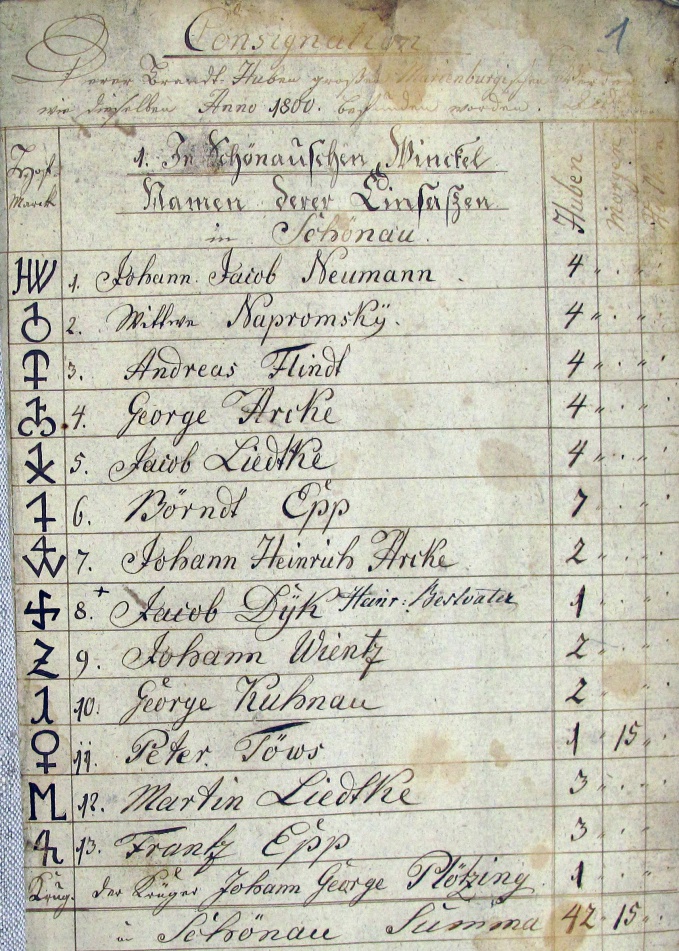 1
Consignation
Derer Brandt-Huben großen Marienburgischen
wie dieselben Anno 1800. befunden worden.
Hoff Marck
1. In Schönauschen Winckel
Namen derer Einsaßen
in Schönau.
Huben Morgen
HW 1. Johann Jacob Neumann 4 " . "
2. Wittwe Napromsky. 4 " . "
3. Andreas Flindt 4 " . "
4. George Arcke 4 " . "
5. Jacob Liedtke 4 " . "
6. Börndt Epp 7 " . "
7. Johann Heinrich Arcke 2 " . "
8. + Jacob Dÿk Heinr: Bestvater 1 " . "
9. Johann Wientz 2 " . "
10. George Kuhnau 2 " . "
11. Peter Töws 1 15 "
12. Martin Liedtke 3 " . "
13. Frantz Epp 3 " . "
Krug. der Krüger Johann George Plötzing 1 " . "
in Schönau Summa 42 15 "